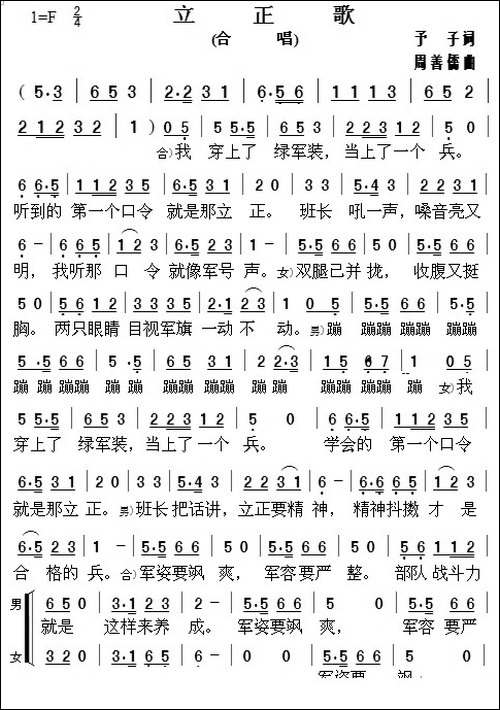 立 正 歌
1=F 2/4
(合 唱)
予 子 词
周 善 儒 曲
( 5·3 | 6 5 3 | 2·2 3 1 | 6·5 6 | 1·2 3 5 | 6 5 2 |
2 1 2 3 2 | 1 ) 0 5 | 5 5·5 | 6 5 3 | 2 2 3 1 2 | 5 0 |
合)我 穿上了 绿军装，当上了一个 兵。
6 6·5 | 1 1 2 3 5 | 6·5 3 1 | 2 0 | 3 3 | 5·4 3 | 2 2 1 2 |
听到的 第一个口令 就是那立 正。 班长 吼一声，嗓音亮又
6 - | 6 6 5 | 1 2 3 | 6·5 2 3 | 1 - | 5·5 6 6 | 5 0 | 5·5 6 6 |
明，我听那 口 令 就像军号 声。女)双腿已并 拢， 收腹又挺
5 0 | 5 6 1 2 | 3·1 3 5 | 2·1 2 3 | 1 0 5 | 5·5 6 6 | 5·5 6 6 |
胸。 两只眼睛 目视军旗 一动 不 动。男)蹦 蹦蹦蹦蹦 蹦蹦蹦蹦
5 5·5 6 6 | 5 5·5 | 6 5 3 1 | 2 2·3 | 1 5 6 7 | 1 0 5 |
蹦 蹦蹦 蹦蹦 蹦 蹦蹦 蹦蹦蹦蹦 蹦 蹦蹦 蹦蹦 蹦蹦 蹦 女)我
5 5·5 | 6 5 3 | 2 2 3 1 2 | 5 0 | 6 6·5 | 1 1 2 3 5 |
穿上了 绿军装，当上了一个 兵。 学会的 第一个口令
6·5 3 1 | 2 0 | 3 3 | 5·4 3 | 2 2 3 1 | 6 - | 6·5 6 5 | 1 2 3 |
就是那立 正。男)班长 把话讲，立正要精 神，精神抖擞 才 是
6·5 2 3 | 1 - | 5·5 6 6 | 5 0 | 5·5 6 6 | 5 0 | 5 6 | 1 1 2 |
合 格的 兵。合)军姿要飒 爽， 军容要严 整。 部队 战斗力
男 6 5 0 | 3·1 2 3 | 2 - | 5·5 6 6 | 5 0 | 5·5 6 6 |
就是 这样来养 成。军姿要飒 爽， 军容 要严
女 3 2 0 | 3·1 6 5 | 6 - | 0 0 | 5·5 6 6 | 5 0 |
军姿要 飒